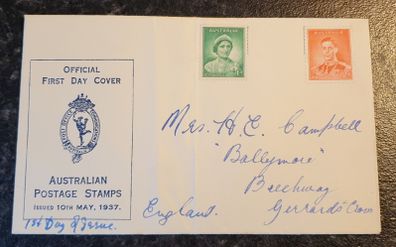 OFFICIAL
FIRST DAY COVER
AUSTRALIAN
POSTAGE STAMPS
ISSUED 10TH MAY, 1937.
1st Day of Issue.
AUSTRALIA
AUSTRALIA
Mrs. H. C. Campbell
"Ballymore"
Beechway
Gerrards Cross
England.